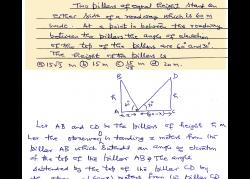 Two pillars of equal height stand on
either side of a roadway which is 60 m
wide. At a point in between the roadway
between the pillars the angle of elevation
of the top of the pillars are 60° and 30°.
The height of the pillars is
a) 15√3 m b) 15 m c) 15/√3 m d) 20 m.
B D
h h
60° 30°
A C
Let AB and CD be the pillars of height h m
Let the observer is standing x meters from the
pillar AB which subtends an angle of elevation
of the top of the pillar AB & the angle
subtended by the top of the pillar CD by
meters from the pillar CD